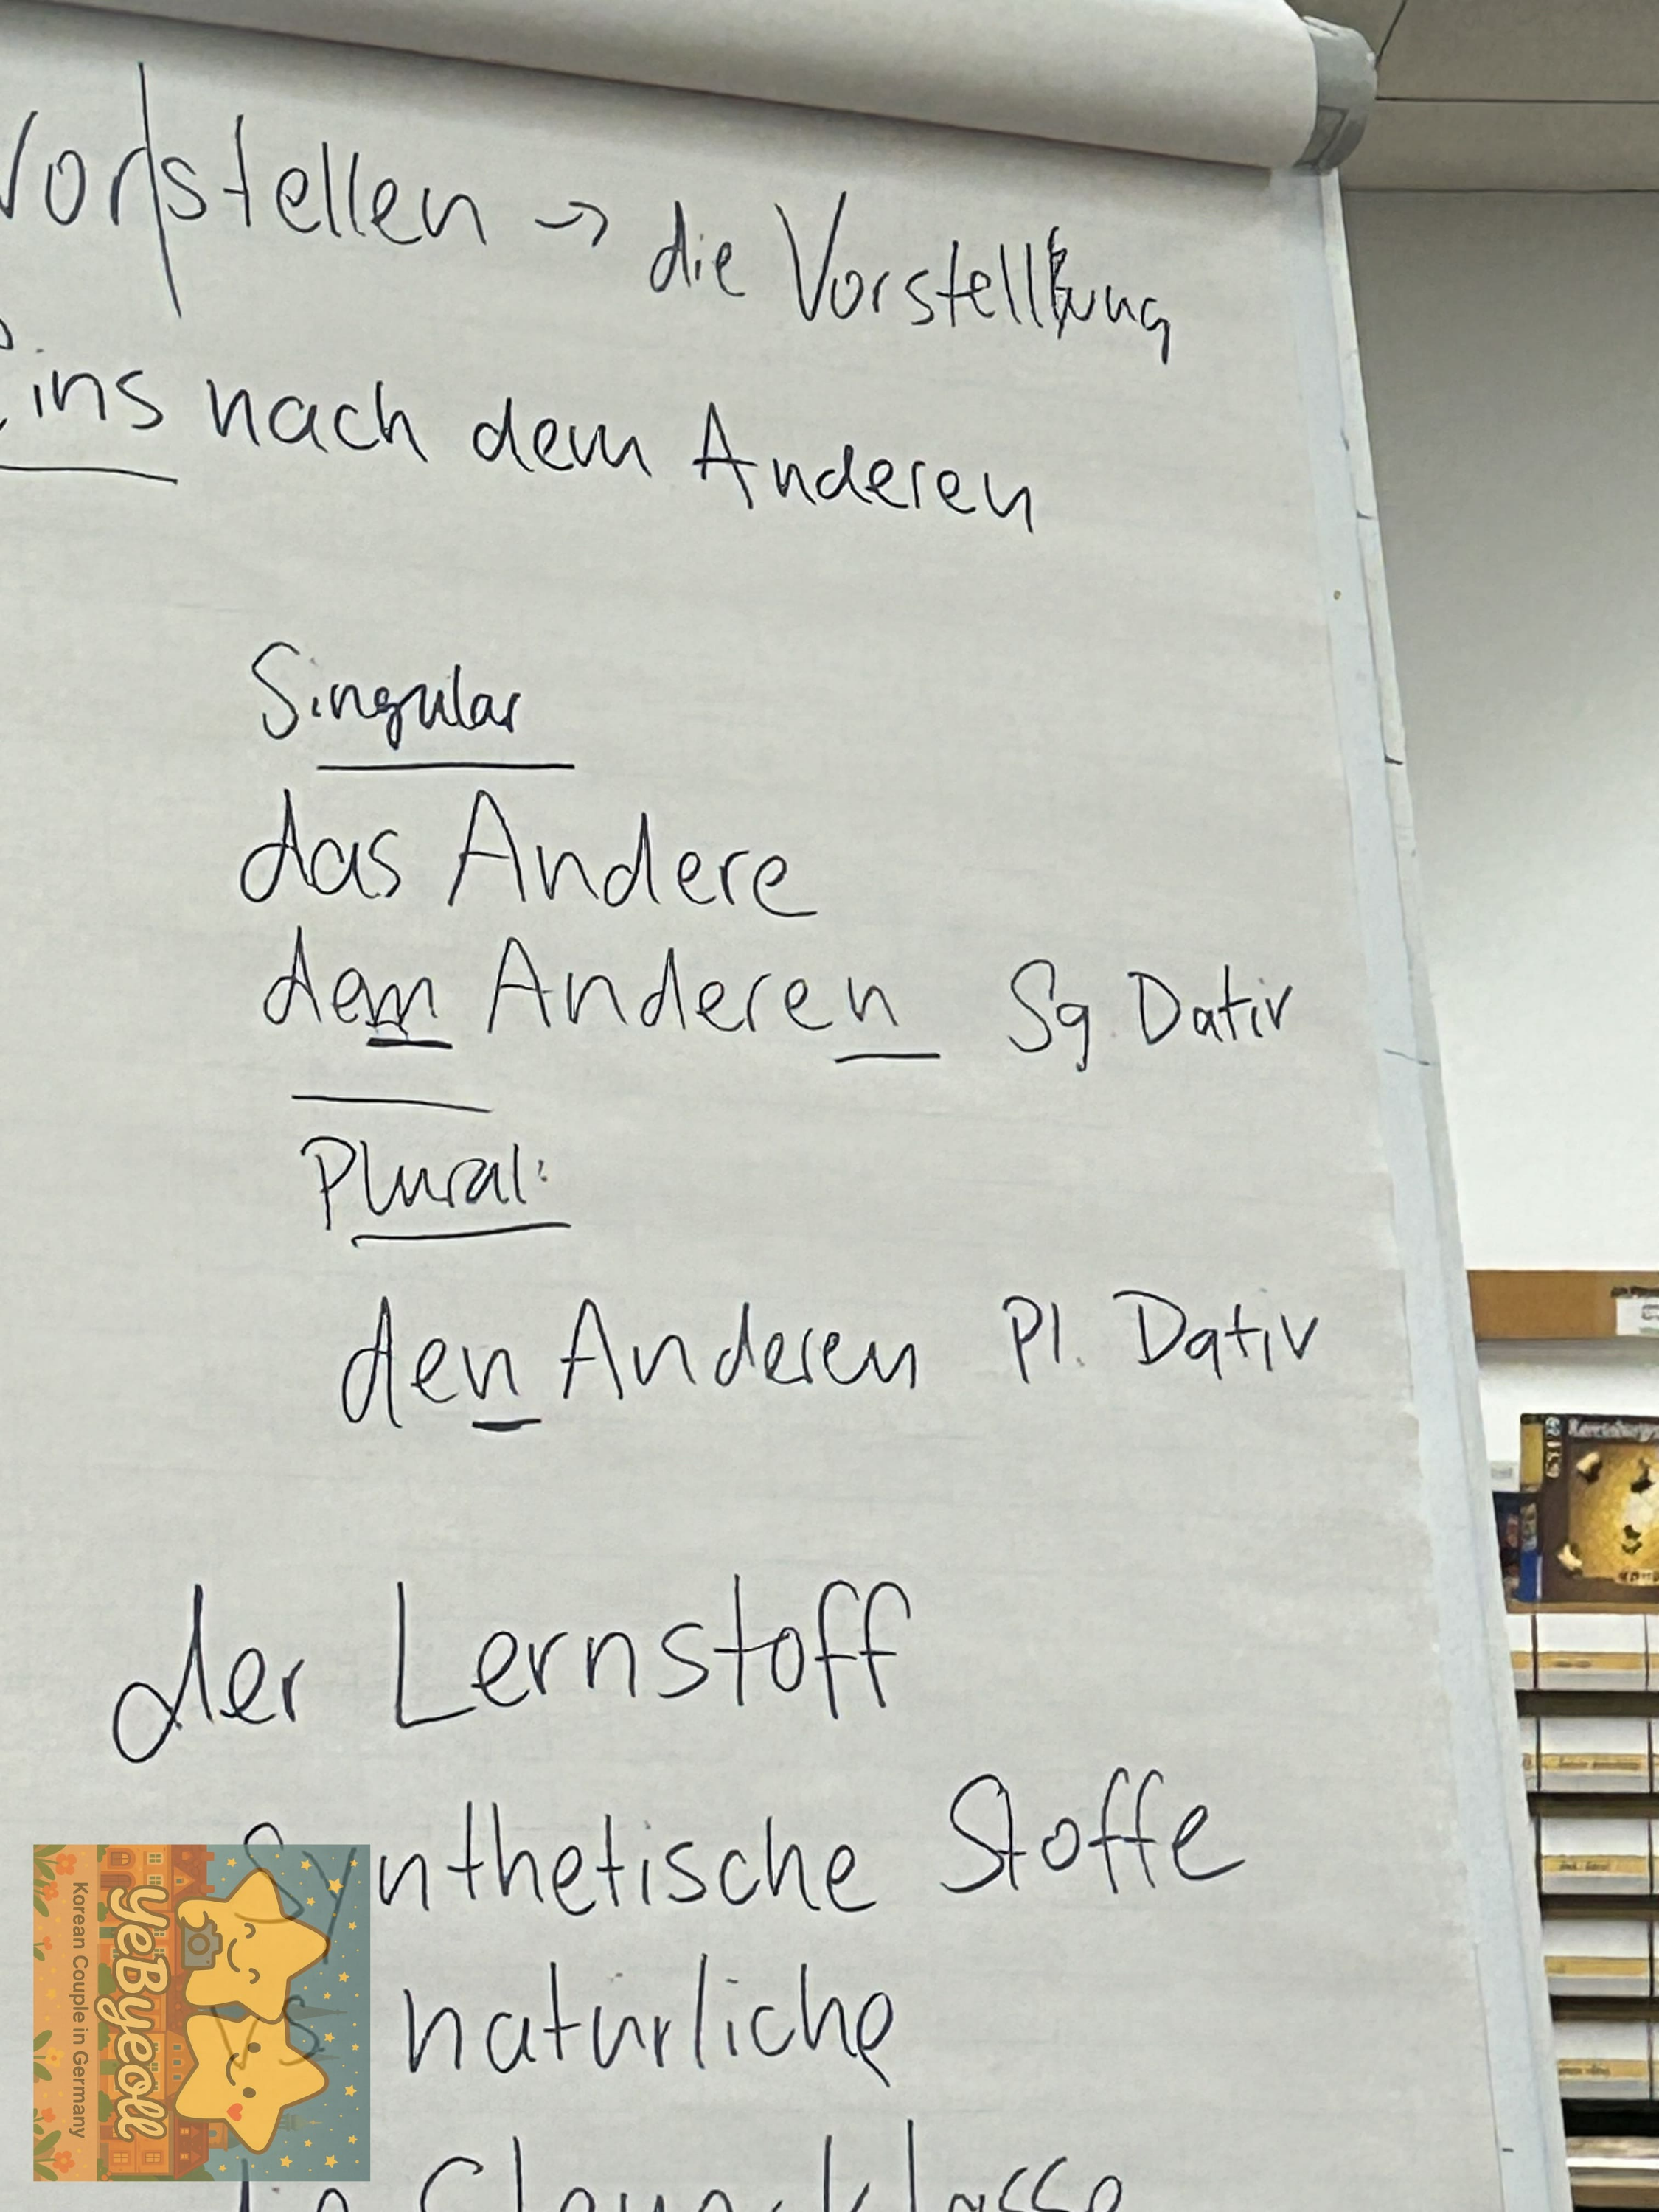 vor|stellen → die Vorstellung
Eins nach dem Anderen
Singular
das Andere
dem Anderen Sg. Dativ
Plural:
den Anderen Pl. Dativ
der Lernstoff
Synthetische Stoffe
vs natürliche
YeByeoll
Korean Couple in Germany